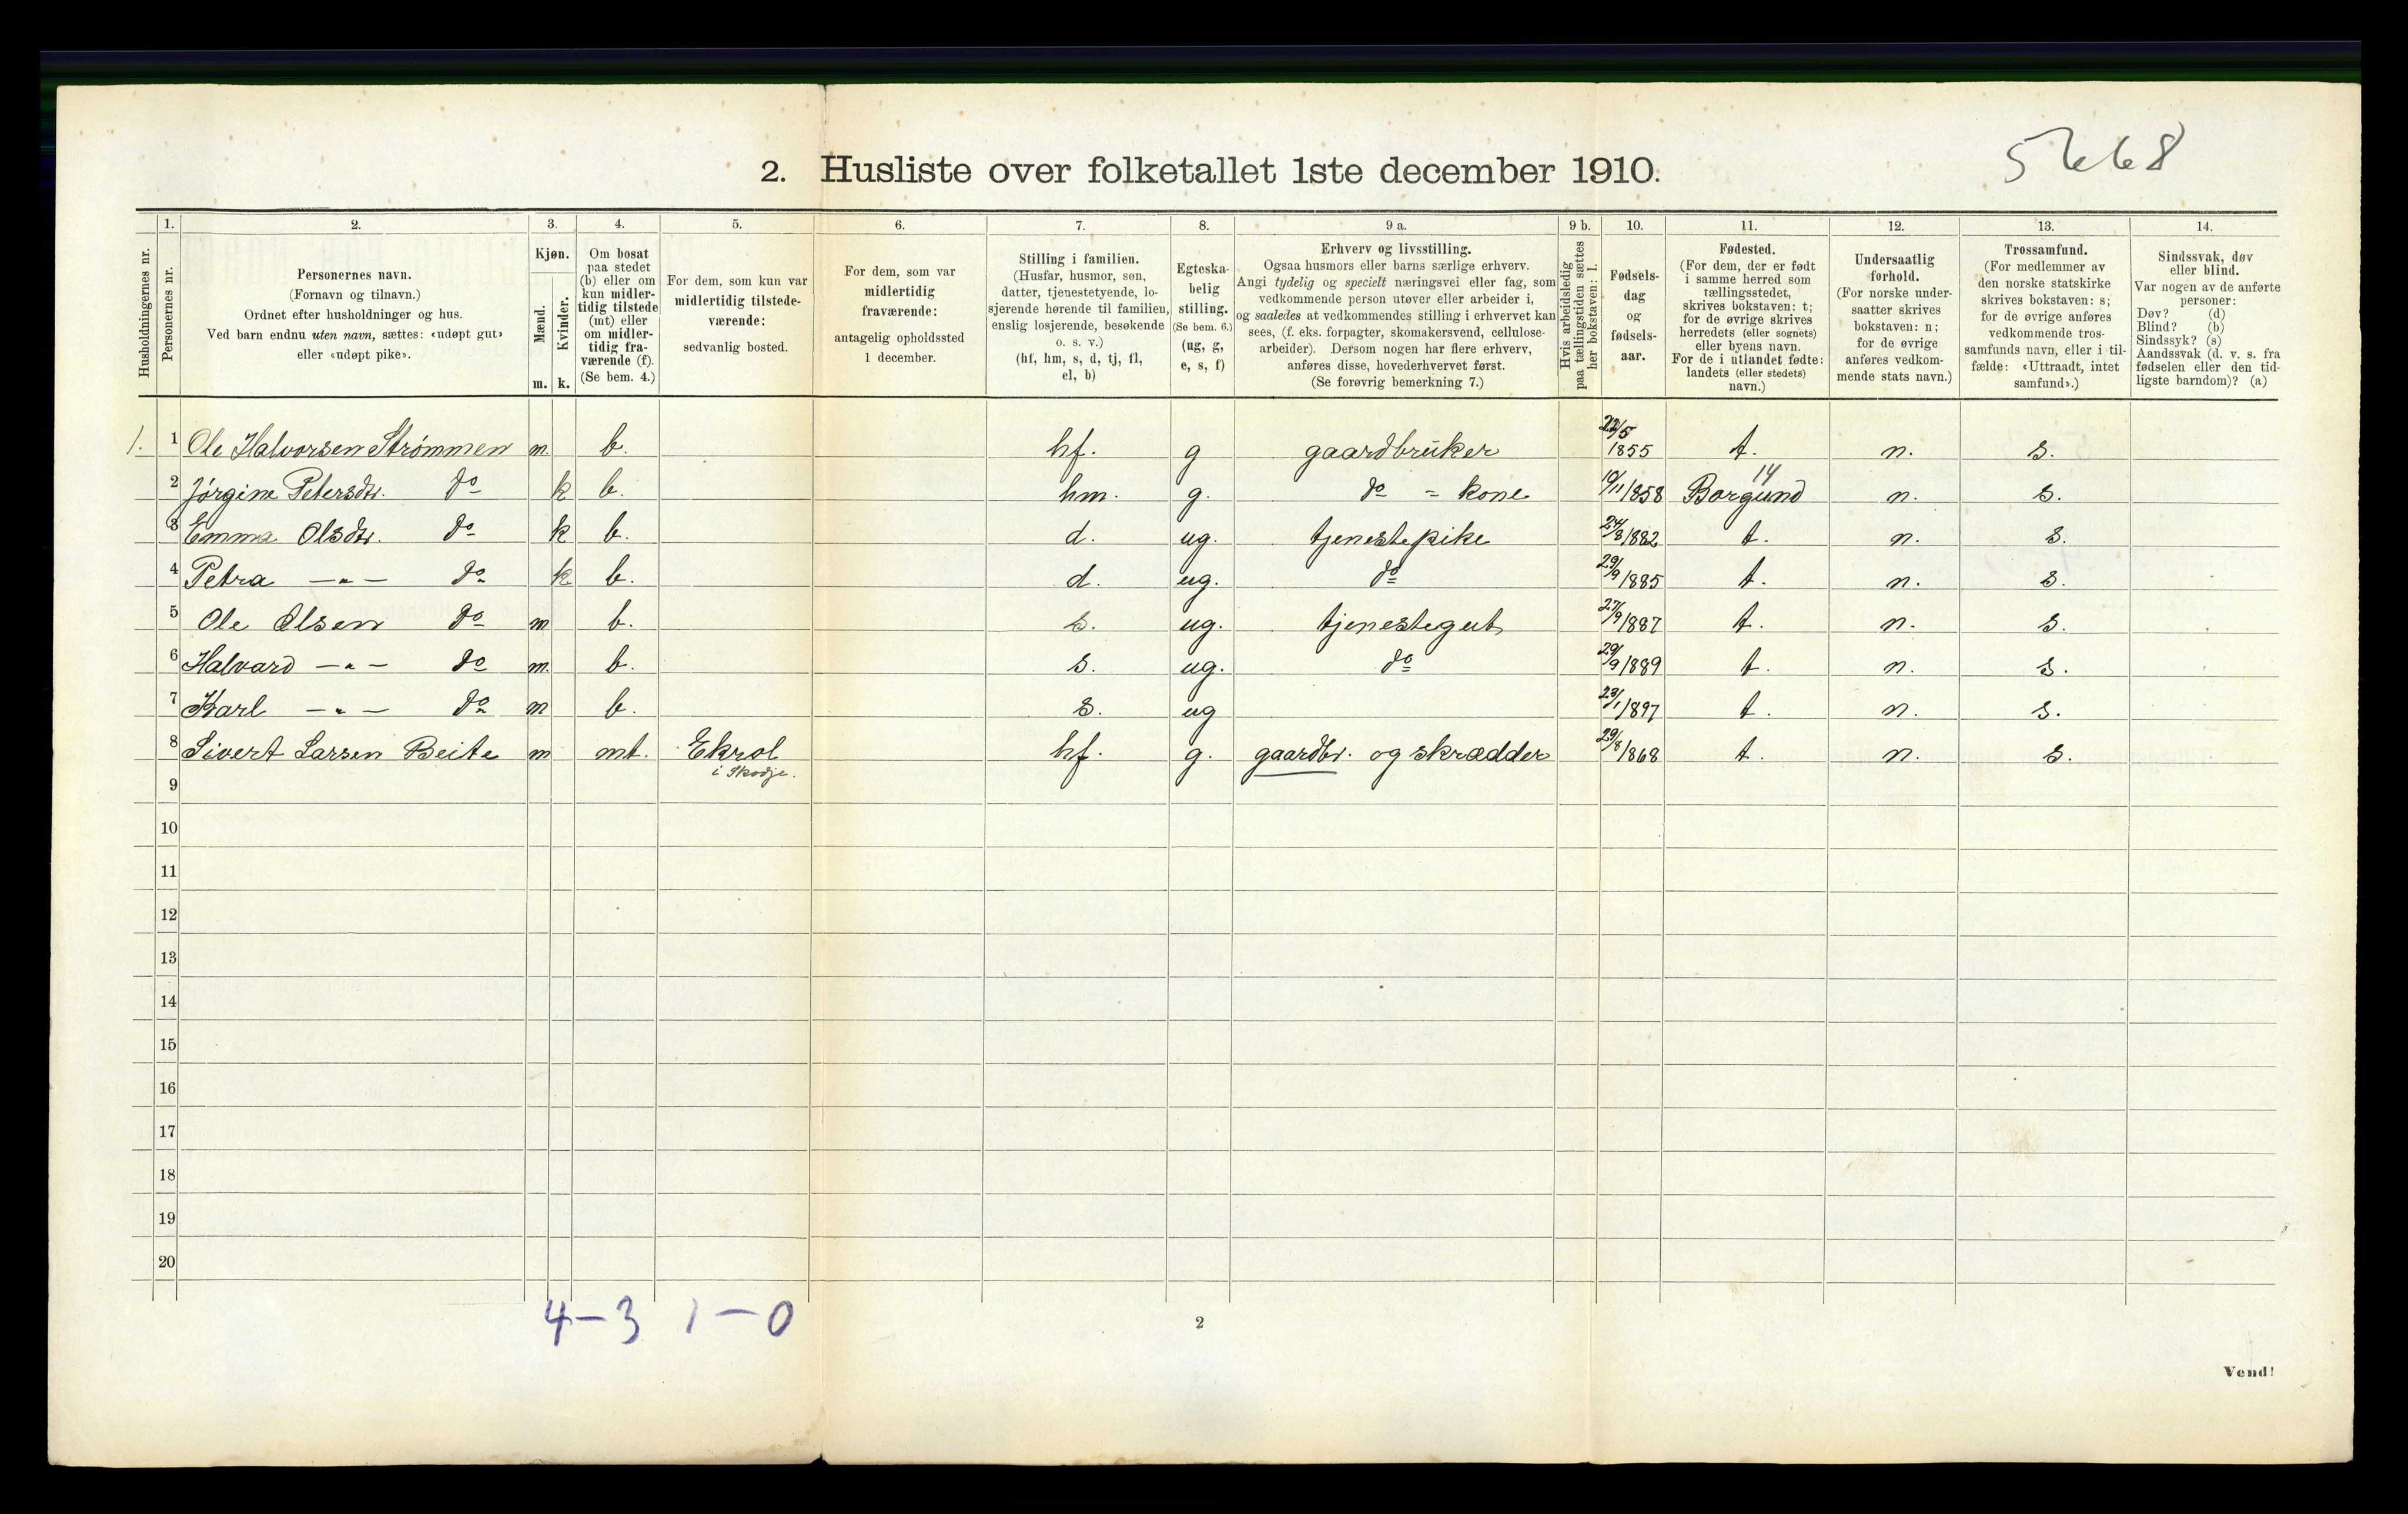 5668
2. Husliste over folketallet 1ste december 1910.
Husholdningernes nr.
1.
Personernes nr.
2.
Personernes navn.
(Fornavn og tilnavn.)
Ordnet efter husholdninger og hus.
Ved barn endnu uten navn, sættes: «udøpt gut»
eller «udøpt pike».
3.
Kjøn.
Mænd.
Kvinder.
m. k.
4.
Om bosat
paa stedet
(b) eller om
kun midler-
tidig tilstede
(mt) eller
om midler-
tidig fra-
værende (f).
(Se bem. 4.)
5.
For dem, som kun var
midlertidig tilstede-
værende:
sedvanlig bosted.
6.
For dem, som var
midlertidig
fraværende:
antagelig opholdssted
1 december.
7.
Stilling i familien.
(Husfar, husmor, søn,
datter, tjenestetyende, lo-
sjerende hørende til familien,
enslig losjerende, besøkende
o. s. v.)
(hf, hm, s, d, tj, fl,
el, b)
8.
Egteska-
belig
stilling.
(Se bem. 6.)
(ug, g,
e, s, f)
9 a.
Erhverv og livsstilling.
Ogsaa husmors eller barns særlige erhverv.
Angi tydelig og specielt næringsvei eller fag, som
vedkommende person utøver eller arbeider i,
og saaledes at vedkommendes stilling i erhvervet kan
sees, (f. eks. forpagter, skomakersvend, cellulose-
arbeider). Dersom nogen har flere erhverv,
anføres disse, hovederhvervet først.
(Se forøvrig bemerkning 7.)
9 b.
Hvis arbeidsledig
paa tællingstiden sættes
her bokstaven: l.
10.
Fødsels-
dag
og
fødsels-
aar.
11.
Fødested.
(For dem, der er født
i samme herred som
tællingsstedet,
skrives bokstaven: t;
for de øvrige skrives
herredets (eller sognets)
eller byens navn.
For de i utlandet fødte:
landets (eller stedets)
navn.)
12.
Undersaatlig
forhold.
(For norske under-
saatter skrives
bokstaven: n;
for de øvrige
anføres vedkom-
mende stats navn.)
13.
Trossamfund.
(For medlemmer av
den norske statskirke
skrives bokstaven: s;
for de øvrige anføres
vedkommende tros-
samfunds navn, eller i til-
fælde: «Uttraadt, intet
samfund».)
14.
Sindssvak, døv
eller blind.
Var nogen av de anførte
personer:
Døv? (d)
Blind? (b)
Sindssyk? (s)
Aandssvak (d. v. s. fra
fødselen eller den tid-
ligste barndom)? (a)
1. 1 Ole Halvorsen Strømmen m. b. hf. g gaardbruker 22/5 1855 t. n. s.
2 Jørgine Petersdtr. do k b. hm. g. do = kone 10/11 1858 Borgund 14 n. s.
3 Emma Olsdtr. do k b. d. ug. tjenestepike 24/8 1882 t. n. s.
4 Petra —"— do k b. d. ug. do 29/9 1885 t. n. s.
5 Ole Olsen do m b. s. ug. tjenestegut 27/9 1887 t. n. s.
6 Halvard —"— do m. b. s. ug. do 29/9 1889 t. n. s.
7 Karl —"— do m b. s. ug 23/1 1897 t. n. s.
8 Sivert Larsen Beite m mt. Ekrol hf. g. gaardbr. og skrædder 29/8 1868 t. n. s.
i Skodje.
9
10
11
12
13
14
15
16
17
18
19
20
4–3 1–0
2
Vend!